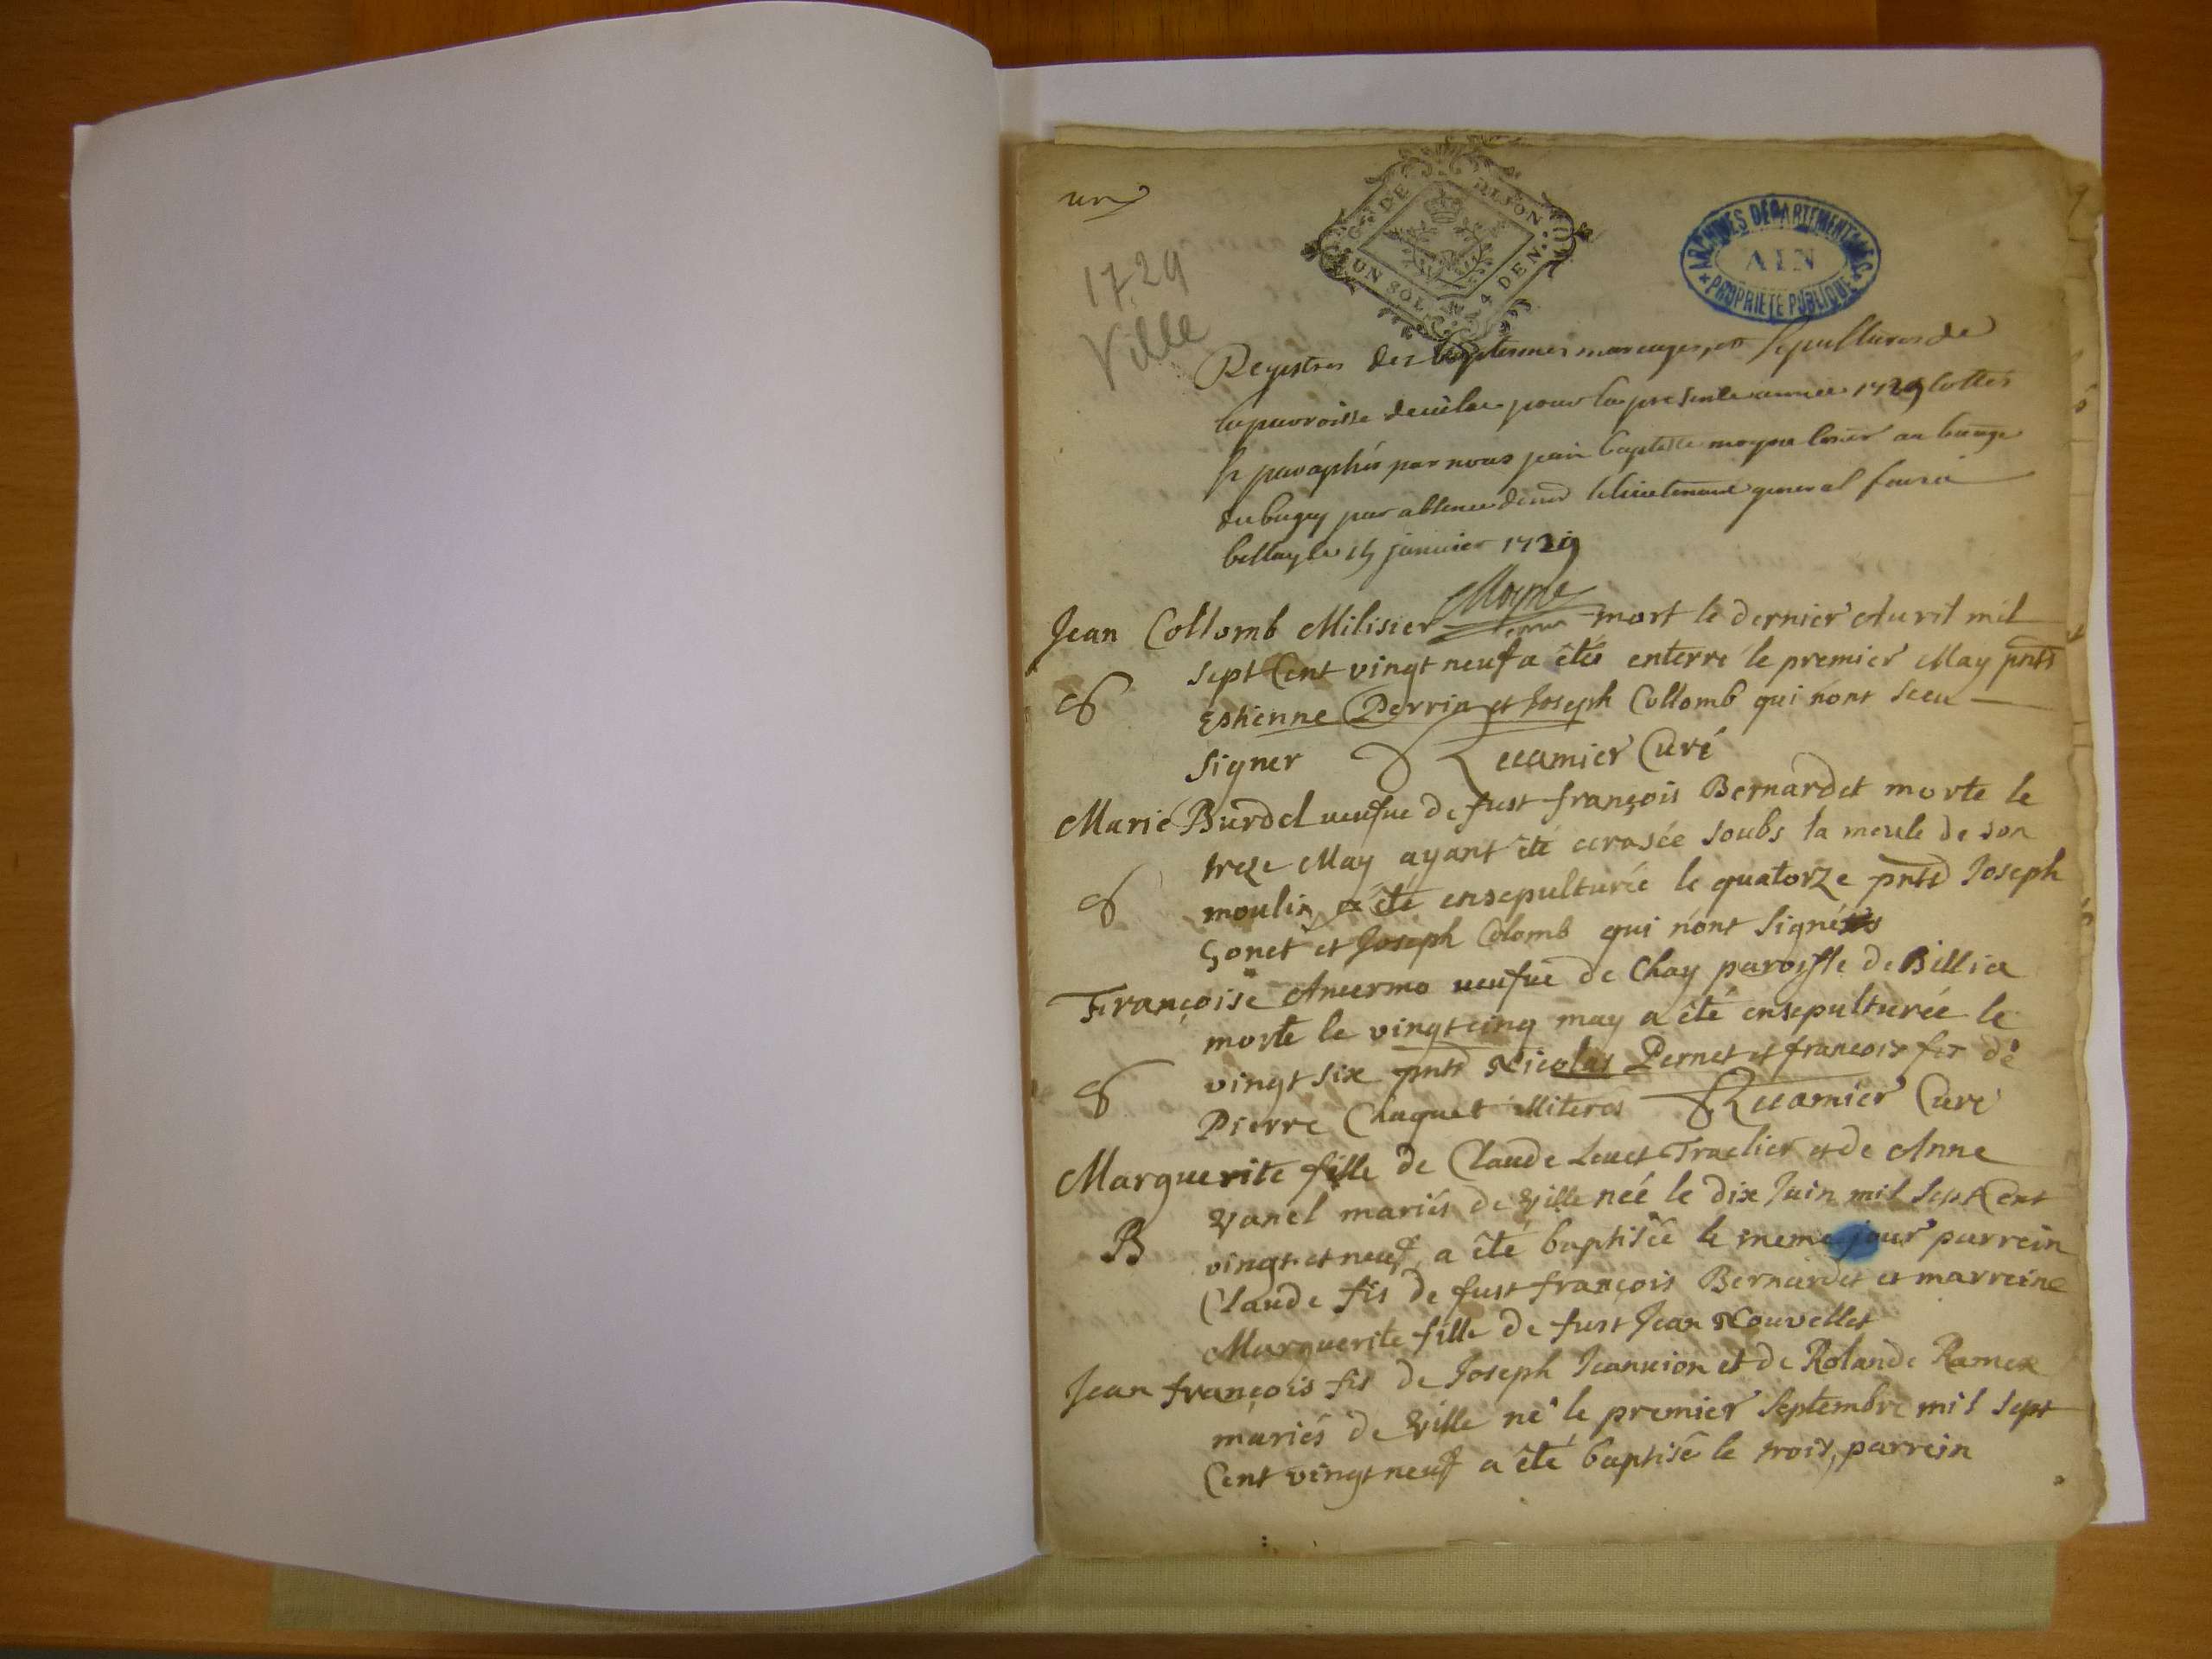 un
1729
Ville
G. DE DIJON
UN SOL 4 DEN.
ARCHIVES DEPARTEMENTALES
AIN
PROPRIETE PUBLIQUE
Registres des baptesmes mariages et sepultures de
la parroisse de ville pour la presente année 1729 cottés
et paraphés par nous jean baptiste moyne au
du bugey par absence de le lieutenant general
bellay le 15 janvier 1729
Moyne
Jean Collomb Milisier mort le dernier Avril mil
sept Cent vingt neuf a étés enterré le premier May pnts
Estienne Perrin et Joseph Collomb qui nont sceu
signer Recamier Curé
Marie Burdel veufve de fust françois Bernardet morte le
treze May ayant été ecrasée soubs la meule de son
moulin, a été ensepulturée le quatorze pnts Joseph
Gonet et Joseph Colomb qui n'ont signé
Françoise veufve de Chay paroisse de Billia
morte le vingt cinq may a été ensepulturée le
vingt six pnts Nicolas Pernet et francois fis de
Pierre Chaquet Miteros Recamier Curé
Marguerite fille de Claude Levet et de Anne
Vanel mariés de Ville née le dix Juin mil sept Cent
B
vingt et neuf, a été baptisée le meme jour parrein
Claude fis de fust françois Bernardet et marreine
Marguerite fille de fust Jean Nouvellet
Jean françois fis de Joseph Jeannion et de Rolande Ramex
mariés de Ville né le premier Septembre mil sept
Cent vingt neuf a été baptisé le trois, parrein